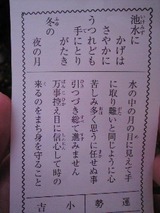 池水に
かげは
さやかに
うつれども
手にとり
がたき
冬の
夜の月
水の中の月の月に見えて手
に取り難いと同じように心
苦しみ多く思うに任せぬ事
引つづき総て進みません
万事控え目に信心して時の
来るのをまち身を守ること
運勢小吉